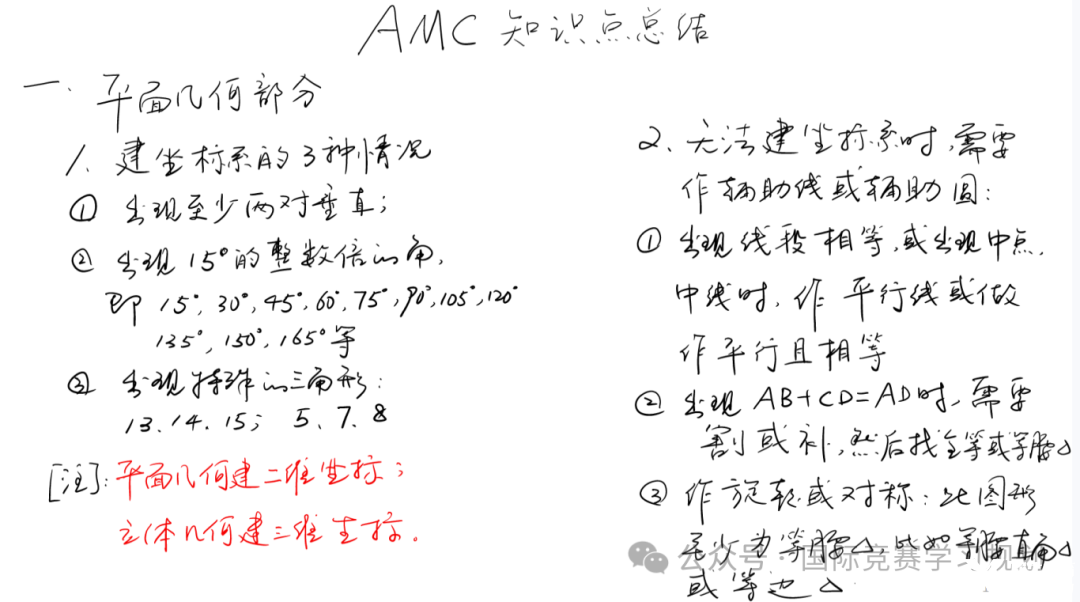 AMC 知识点总结
一. 平面几何部分
1. 建坐标系的3种情况
① 出现至少两对垂直;
② 出现15°的整数倍的角,
即 15°, 30°, 45°, 60°, 75°, 90°, 105°, 120°
135°, 150°, 165°等
③ 出现特殊的三角形:
13. 14. 15; 5. 7. 8
[注]: 平面几何建二维坐标;
立体几何建三维坐标.
2. 无法建坐标系时, 需要
作辅助线或辅助圆:
① 出现线段相等, 或出现中点,
中线时, 作 平行线或做
作平行且相等
② 出现 AB+CD=AD时, 需要
割或补, 然后找全等或等腰△
③ 作旋转或对称: 此图形
至少为等腰△, 比如等腰直角△
或等边△
公众号·国际竞赛学习